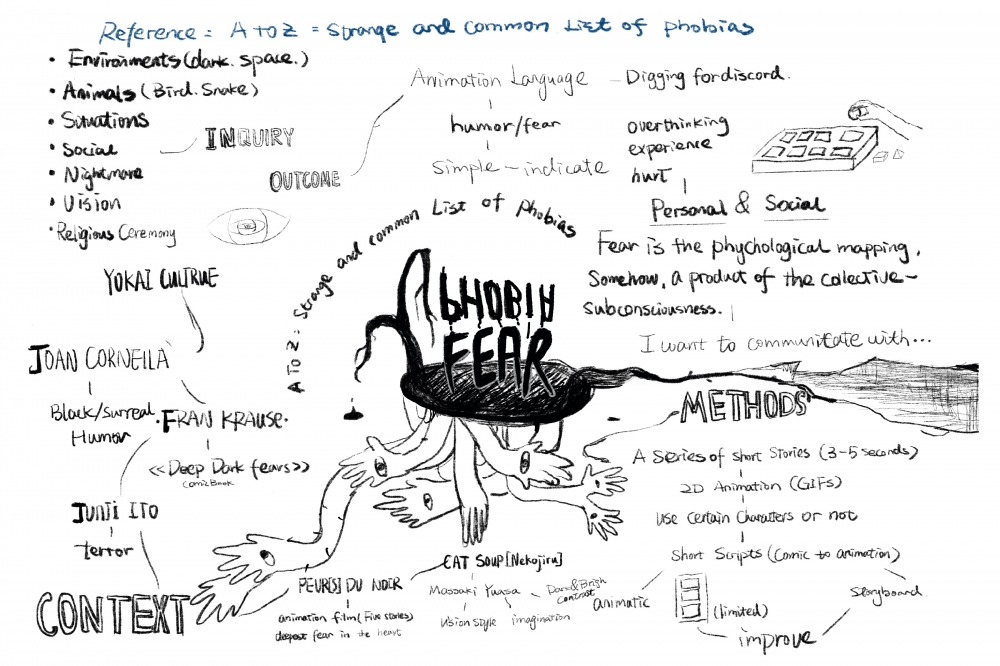 Reference = A to Z = Strange and common List of phobias
• Environments (dark. space.)
• Animals (Bird. Snake)
• Situations
• Social
• Nightmare
• Vision
• Religious Ceremony
INQUIRY
OUTCOME
Animation Language - Digging for discord.
humor/fear
simple - indicate
overthinking
experience
hurt
Personal & Social
Fear is the phychological mapping,
Somehow, a product of the collective-
subconsciousness.
I want to communitate with...
A to Z: Strange and common List of Phobias
PHOBIA
FEAR
YOKAI CULTRUE
JOAN CORNEILA
Black/surreal
Humor
• FRAN KRAUSE •
<<Deep Dark fears>>
comic Book
JUNJI ITO
terror
CONTEXT
PEUR[S] DU NOIR
animation film (Five stories)
deepest fear in the heart
CAT SOUP [Nekojiru]
Massaki Yuasa - Dark & Brish
contrast
vision style imagination
METHODS
A series of short Stories (3-5 seconds)
2D Animation (GIFs)
Use Certain Characters or not
Short Scripts (Comic to animation)
animatic
(limited)
storyboard
improve